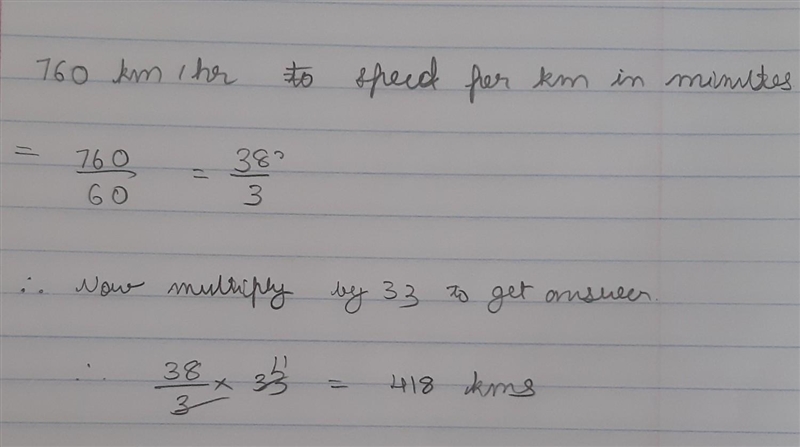 760 km/hr to speed per km in minutes
= 760/60 = 38/3
∴ Now multiply by 33 to get answer.
∴ 38/3 x 33 11 = 418 kms